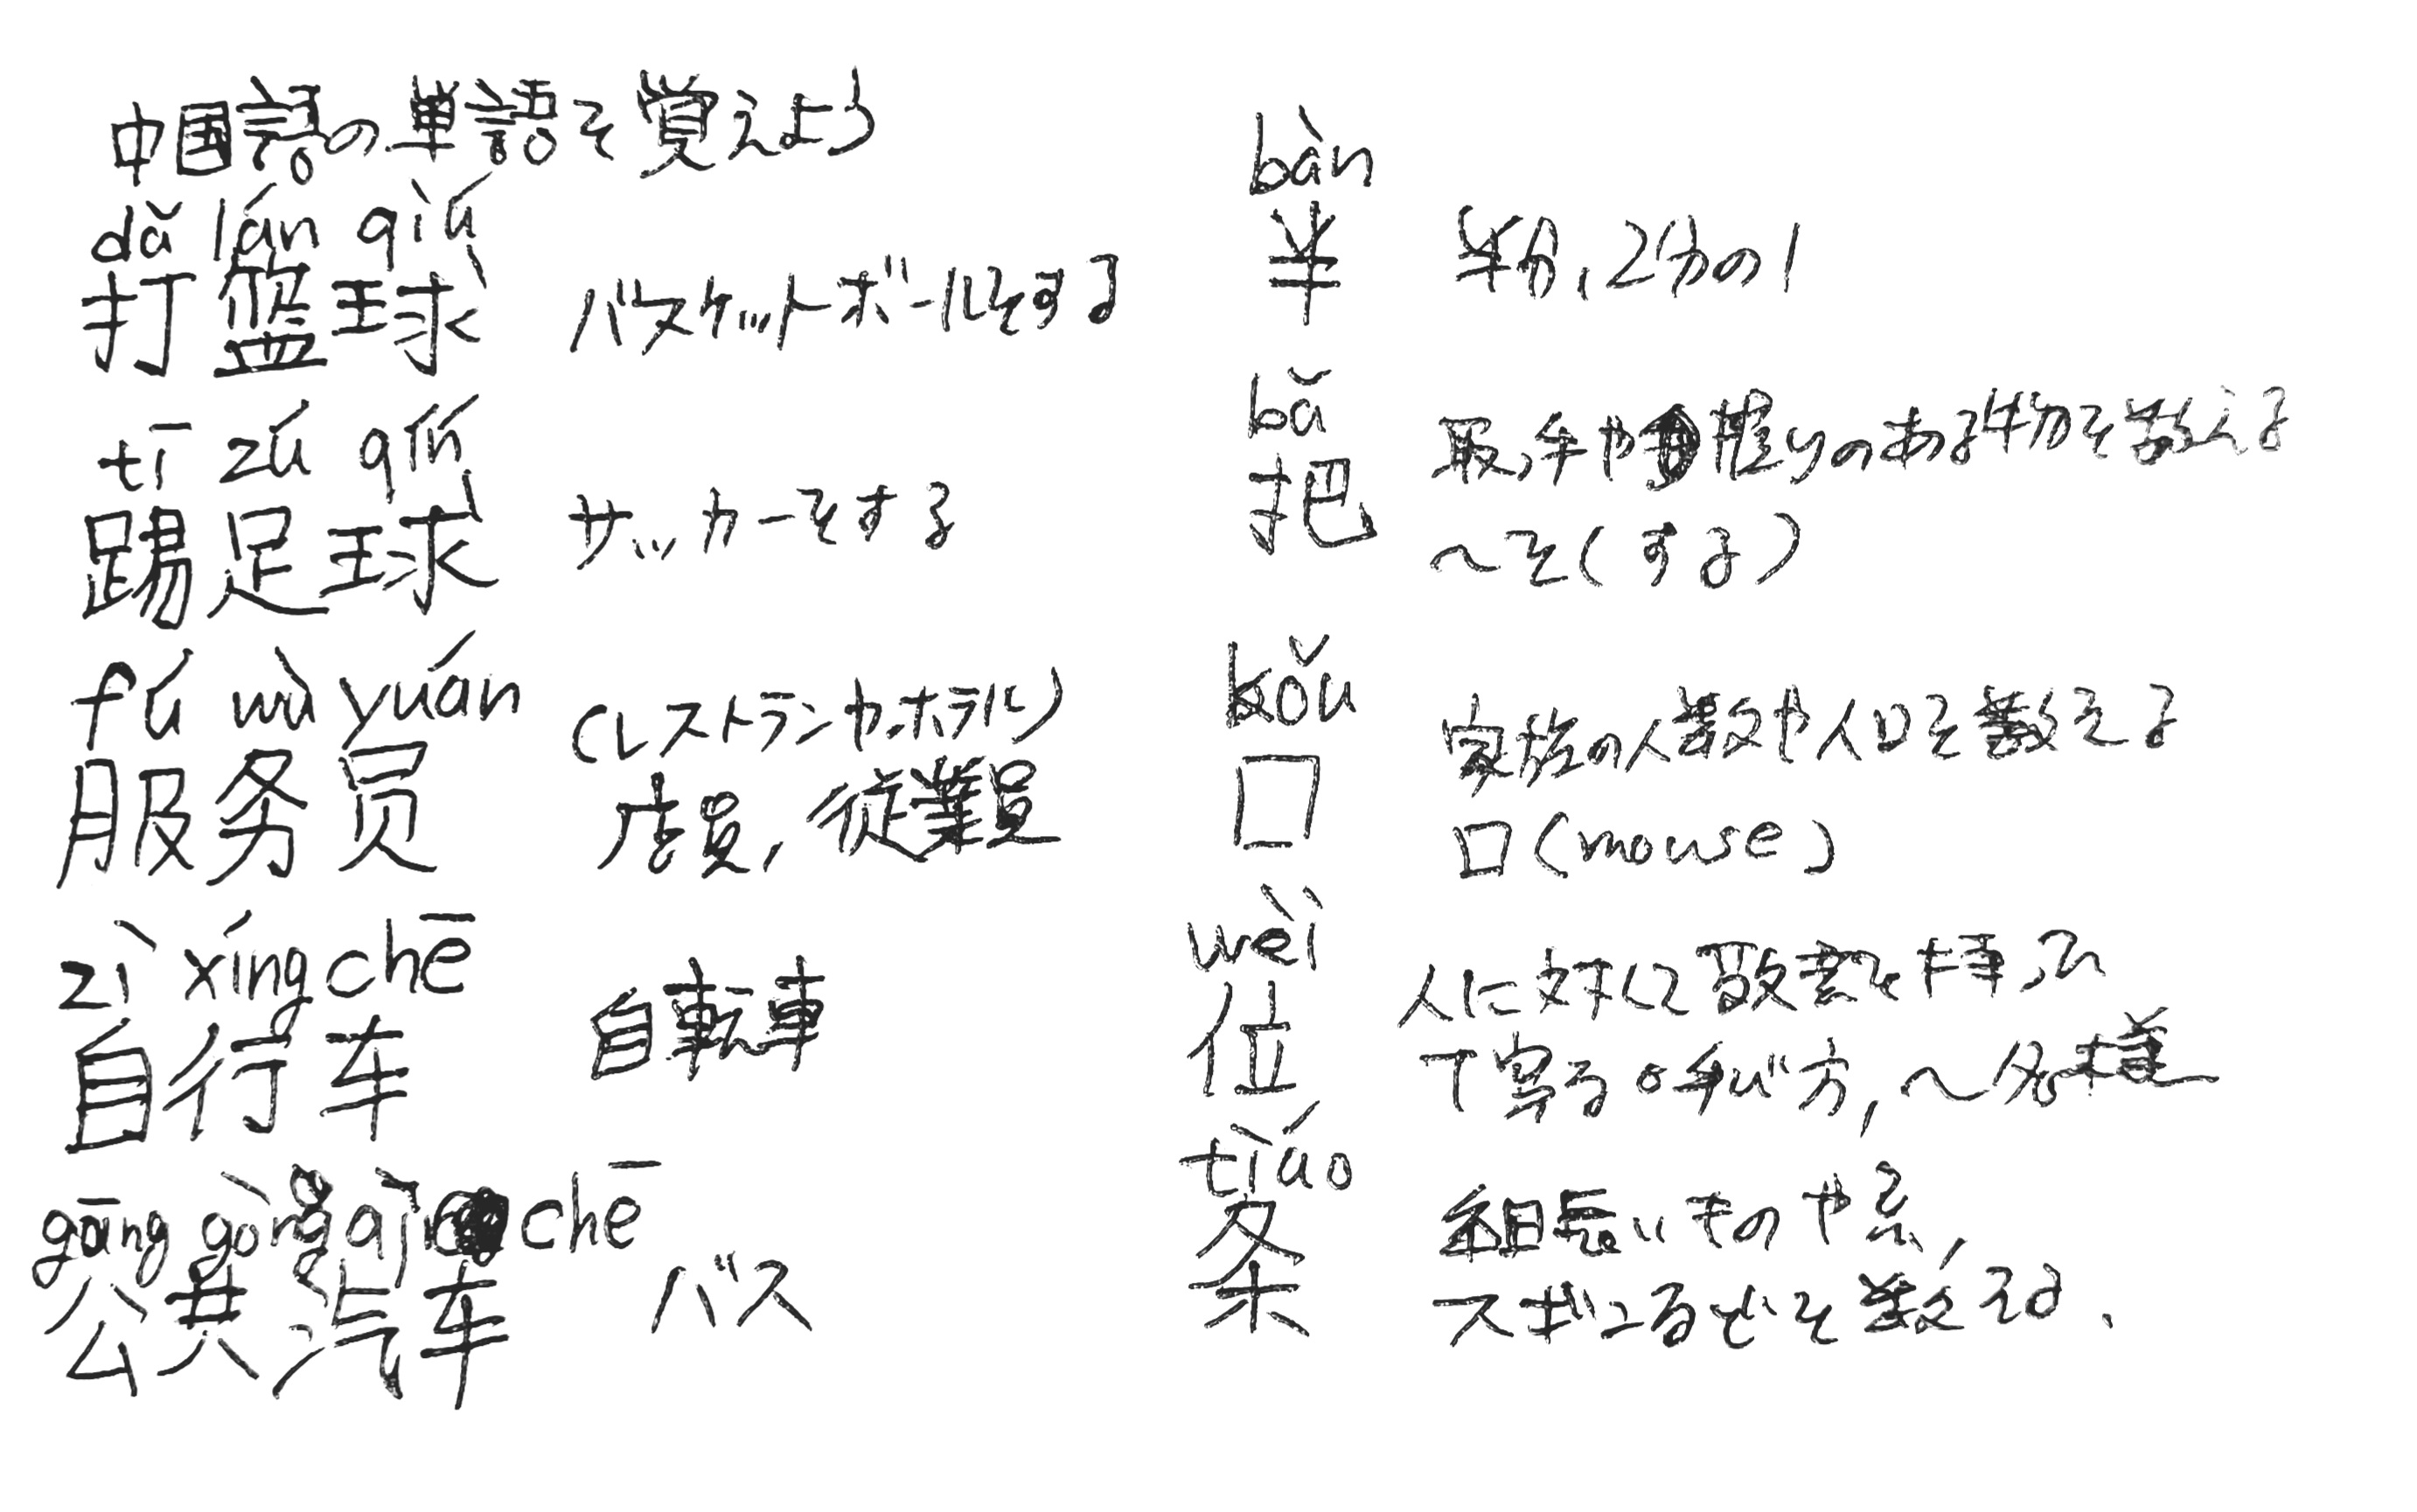 中国語の単語を覚えよう
dǎ lán qiú
打篮球 バスケットボールをする
tī zú qiú
踢足球 サッカーをする
fú wù yuán
服务员 (レストランや、ホテル)
店員, 従業員
zì xíng chē
自行车 自転車
gāng gòng qì chē
公共汽车 バス
bàn
半 半分, 2分の1
bǎ
把 取っ手や握りのある物を数える
〜を(する)
kǒu
口 家族の人数や人口を数える
口(mouse)
wèi
位 人に対して敬意を持っ
て 呼び方, 〜名様
tiáo
条 細長いものや
ズボン を数える